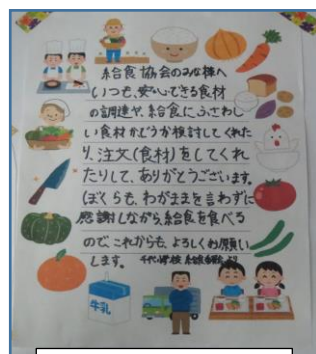 給食協会のみな様へ
いつも、安心できる食材
の調達や、給食にふさわし
い食材かどうか検討してくれた
り、注文(食材)をしてくれ
たりして、ありがとうございます。
ぼくらも、わがままを言わずに
感謝しながら、給食を食べる
ので、これからも、よろしくお願い
します。
牛乳